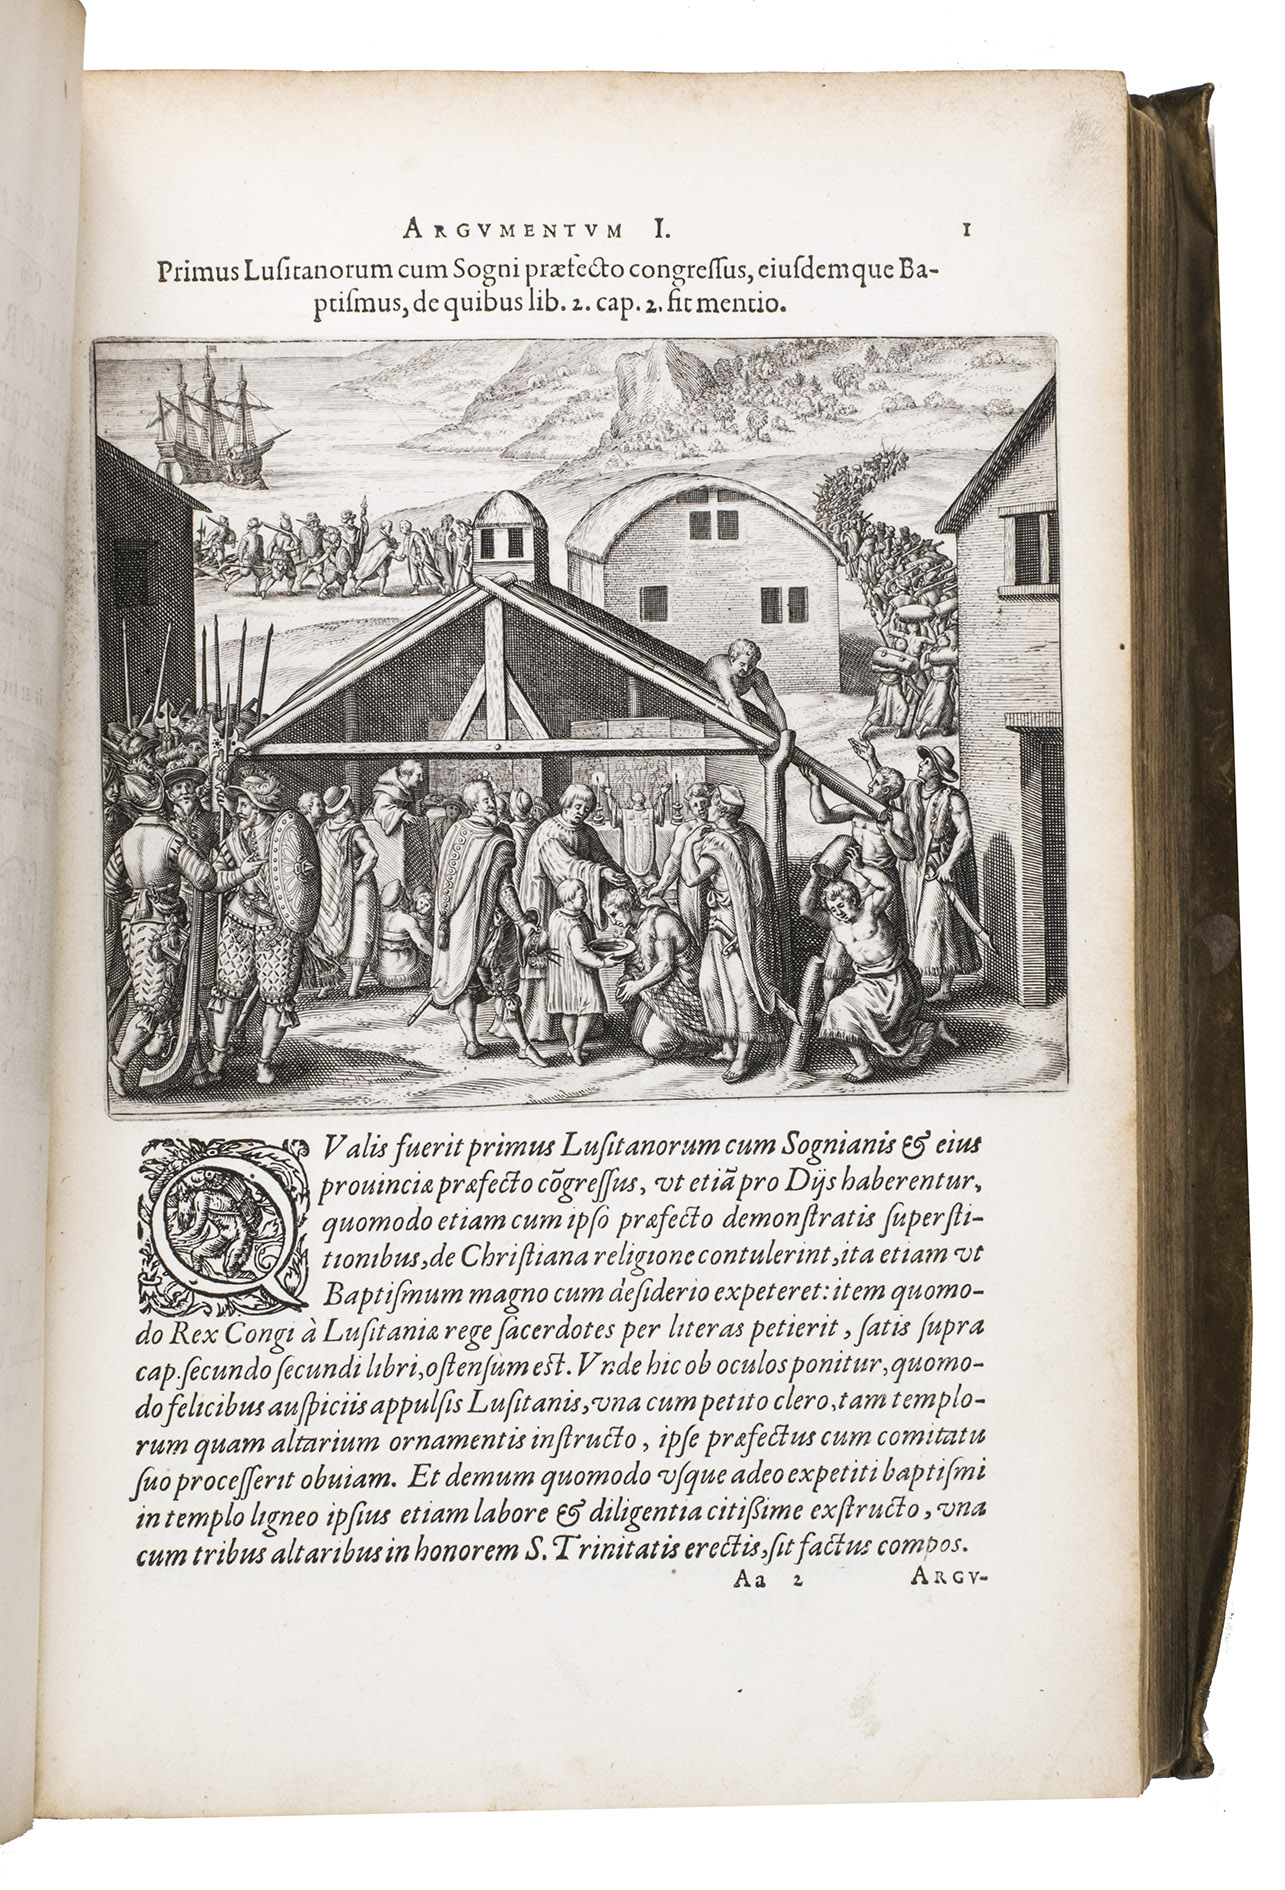 ARGVMENTVM I. 1
Primus Luſitanorum cum Sogni præfecto congreſſus, eiuſdemque Ba-
ptiſmus, de quibus lib. 2. cap. 2. fit mentio.
QValis fuerit primus Luſitanorum cum Sognianis & eius
prouinciæ præfecto cõgreſſus, vt etiã pro Dijs haberentur,
quomodo etiam cum ipſo præfecto demonſtratis ſuperſti-
tionibus, de Chriſtiana religione contulerint, ita etiam vt
Baptiſmum magno cum deſiderio expeteret: item quomo-
do Rex Congi à Luſitaniæ rege ſacerdotes per literas petierit, ſatis ſupra
cap. ſecundo ſecundi libri, oſtenſum est. Vnde hic ob oculos ponitur, quomo-
do felicibus auſpiciis appulſis Luſitanis, vna cum petito clero, tam templo-
rum quam altarium ornamentis inſtructo, ipſe præfectus cum comitatu
ſuo proceſſerit obuiam. Et demum quomodo vſque adeo expetiti baptiſmi
in templo ligneo ipſius etiam labore & diligentia citißime exſtructo, vna
cum tribus altaribus in honorem S. Trinitatis erectis, ſit factus compos.
Aa 2 ARGV-